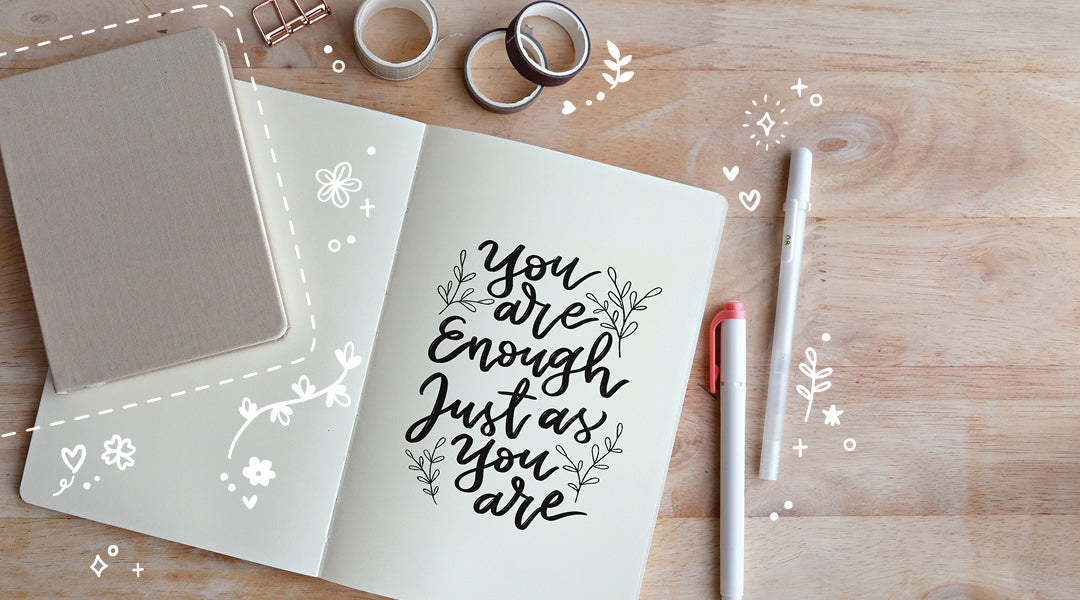 You
are
Enough
Just as
You
are